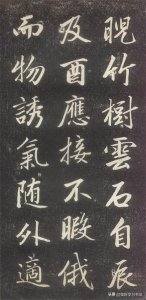 晲竹樹雲石自辰
及酉應接不暇俄
而物誘氣随外適